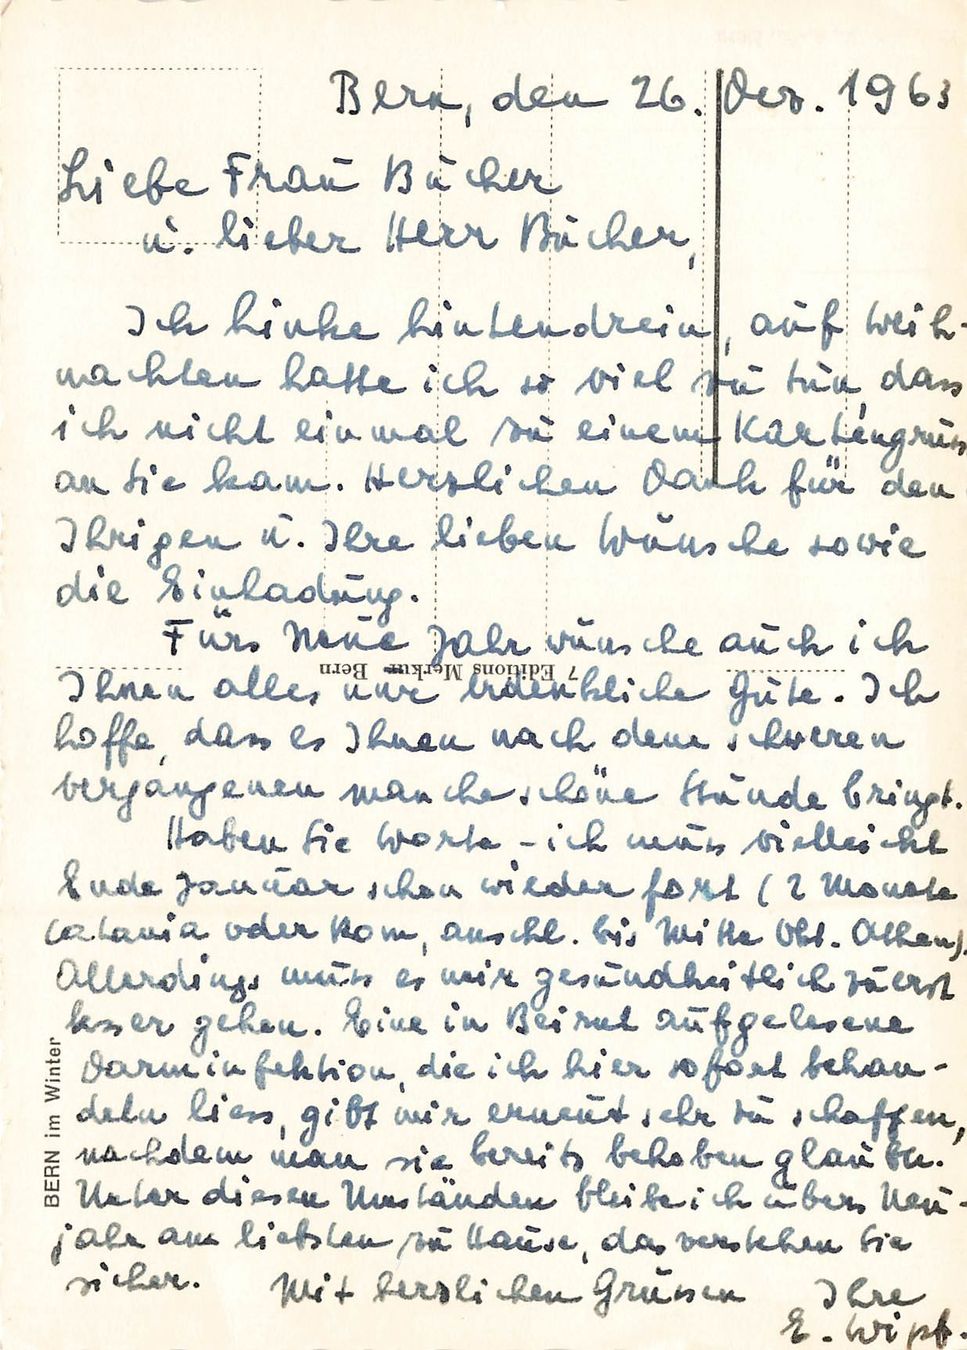 Bern, den 26. Dez. 1963
Liebe Frau Bücher
u. lieber Herr Bücher,
Ich hinke hintendrein, auf Weih-
nachten hatte ich so viel zu tun, dass
ich nicht einmal zu einem Kartengruss
an Sie kam. Herzlichen Dank für den
Ihrigen u. Ihre lieben Wünsche sowie
die Einladung.
Fürs Neue Jahr wünsche auch ich
7 Editions Merkur Bern
Ihnen alles nur erdenkliche Gute. Ich
hoffe, dass es Ihnen nach dem schweren
vergangenen manche schöne Stunde bringt.
Haben Sie Worte, - ich muss vielleicht
Ende Januar schon wieder fort (2 Monate
Catania oder Rom, anschl. bis Mitte Okt. Athen).
Allerdings muss es mir gesundheitlich zuerst
besser gehen. Eine in Beirut aufgelesene
Darminfektion, die ich hier sofort behan-
deln liess, gibt mir erneut sehr zu schaffen,
nachdem man sie bereits behoben glaubte.
Unter diesen Umständen bleibe ich übers Neu-
jahr am liebsten zu Hause, das verstehen Sie
sicher. Mit herzlichen Grüssen Ihre
E. Wipf.
BERN im Winter